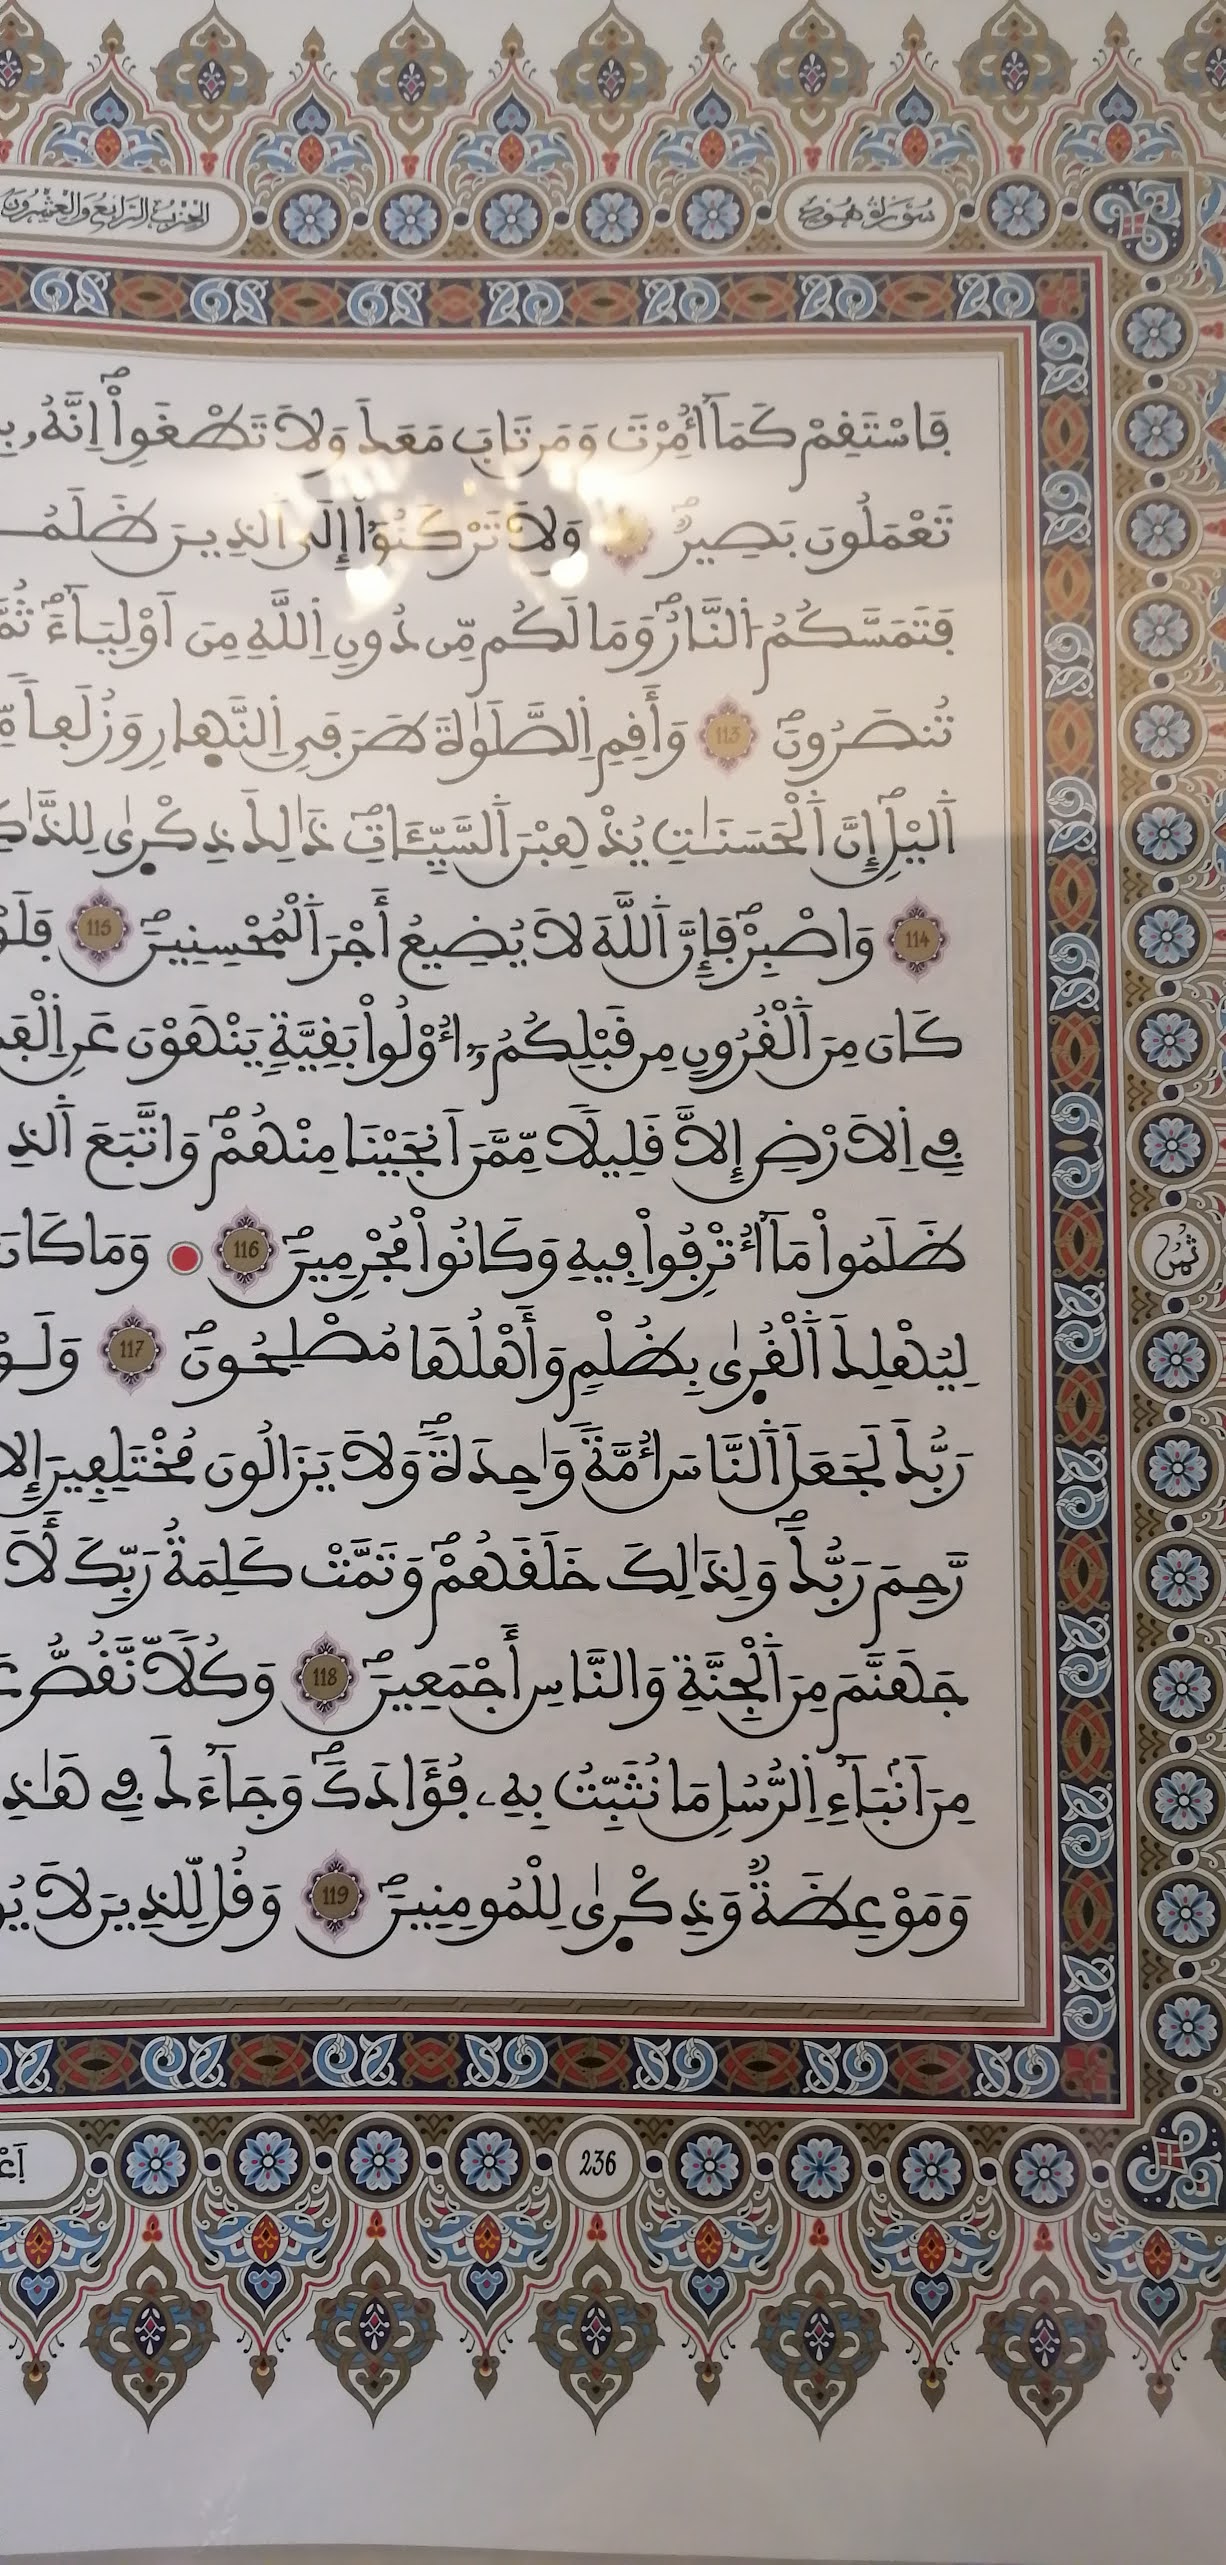 سُورَةُ هُودٍ
الحِزْبُ الرَّابِعُ وَالعِشْرُونَ
فَاسْتَقِمْ كَمَآ أُمِرْتَ وَمَن تَابَ مَعَكَ وَلَا تَطْغَوِاْۖ اِنَّهُۥ
تَعْمَلُونَ بَصِيرٞۖ وَلَا تَرْكَنُوٓاْ إِلَى اَ۬لذِينَ ظَلَمُ
فَتَمَسَّكُمُ اُ۬لنَّارُۖ وَمَا لَكُم مِّن دُونِ اِ۬للَّهِ مِنَ اَوْلِيَآءَۖ ثُمَّ
تُنصَرُونَۖ 113 وَأَقِمِ اِ۬لصَّلَوٰةَ طَرَفَيِ اِ۬لنَّه۪ارِ وَزُلَفاٗ
اَ۬ليْلِۖ إِنَّ اَ۬لْحَسَنَٰتِ يُذْهِبْنَ اَ۬لسَّيِّـَٔاتِۖ ذَٰلِكَ ذِكْر۪يٰ
114 وَاصْبِرْۖ فَإِنَّ اَ۬للَّهَ لَا يُضِيعُ أَجْرَ اَ۬لْمُحْسِنِينَۖ 115
كَانَ مِنَ اَ۬لْقُرُونِ مِن قَبْلِكُمُۥٓ أُوْلُواْ بَقِيَّةٖ يَنْهَوْنَ عَنِ
فِے اِ۬لَارْضِ إِلَّا قَلِيلاٗ مِّمَّنَ اَنجَيْنَا مِنْهُمْۖ وَاتَّبَعَ اَ۬لذِ
ظَلَمُواْ مَآ أُتْرِفُواْ فِيهِ وَكَانُواْ مُجْرِمِينَۖ 116 وَمَا كَانَ
ثُمُن
لِيُهْلِكَ اَ۬لْقُر۪يٰ بِظُلْمٖ وَأَهْلُهَا مُصْلِحُونَۖ 117 وَلَوْ
رَبُّكَ لَجَعَلَ اَ۬لنَّاسَ أُمَّةٗ وَٰحِدَةٗۖ وَلَا يَزَالُونَ مُخْتَلِفِينَ إِلَّا
رَّحِمَ رَبُّكَۖ وَلِذَٰلِكَ خَلَقَهُمْۖ وَتَمَّتْ كَلِمَةُ رَبِّكَ لَأَ
جَهَنَّمَ مِنَ اَ۬لْجِنَّةِ وَالنَّاسِ أَجْمَعِينَۖ 118 وَكُلّاٗ نَّقُصُّ
مِنَ اَنۢبَآءِ اِ۬لرُّسُلِ مَا نُثَبِّتُ بِهِۦ فُؤَادَكَۖ وَجَآءَكَ فِے هَٰذِ
وَمَوْعِظَةٞ وَذِكْر۪يٰ لِلْمُومِنِينَۖ 119 وَقُل لِّلذِينَ لَا
236